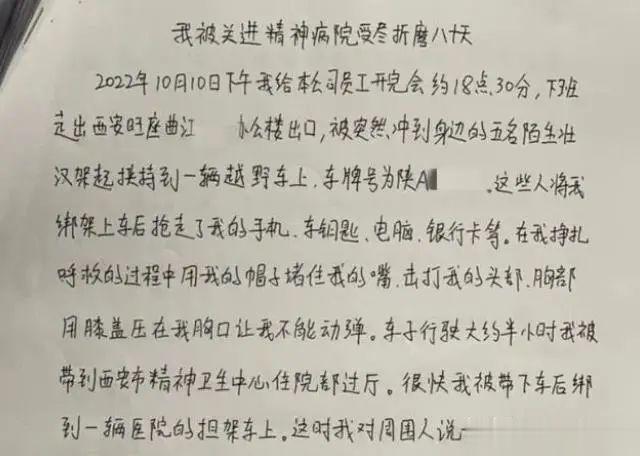 我被关进精神病院受尽折磨八十天
2022年10月10日下午我给本公司员工开完会约18点30分,下班
走出西安旺座曲江 办公楼出口,被突然冲到身边的五名陌生壮
汉架起挟持到一辆越野车上,车牌号为陕A 。这些人将我
绑架上车后抢走了我的手机、车钥匙、电脑、银行卡等。在我挣扎
呼救的过程中用我的帽子堵住我的嘴,击打我的头部、胸部
用膝盖压在我胸口让我不能动弹。车子行驶大约半小时我被
带到西安市精神卫生中心住院部过厅。很快我被带下车后绑
到一辆医院的担架车上。这时我对周围人说